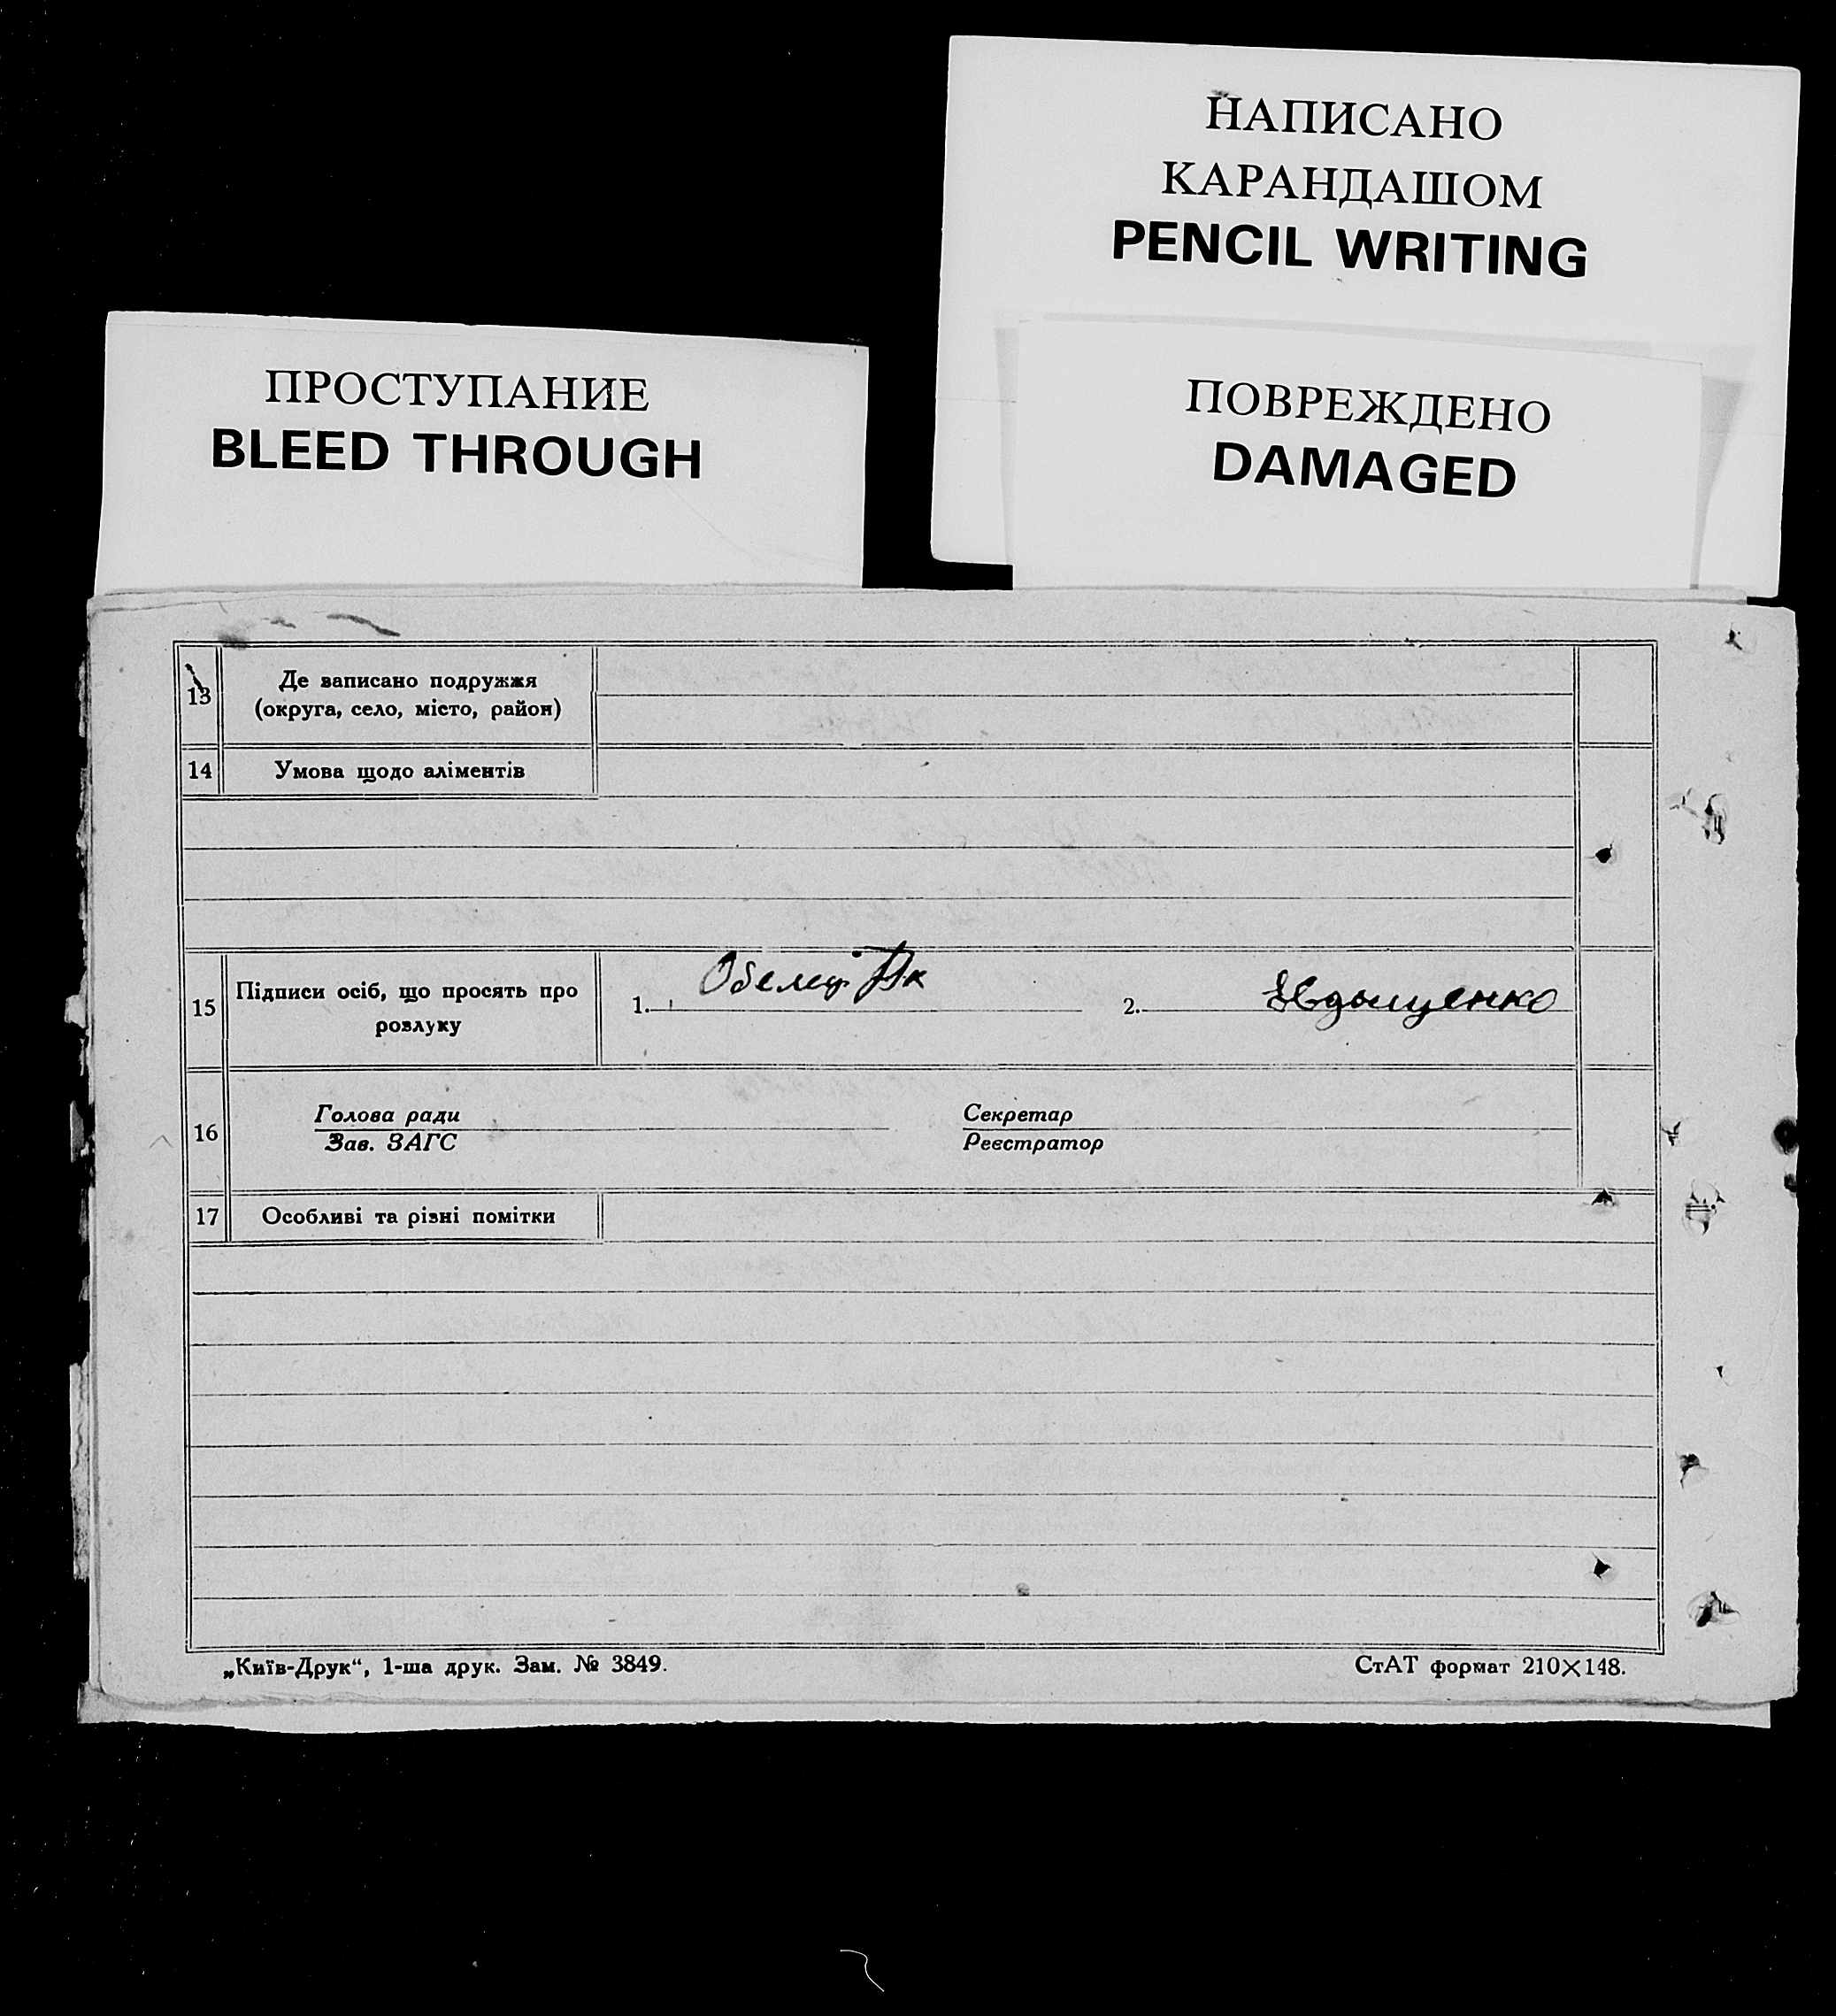 НАПИСАНО
КАРАНДАШОМ
PENCIL WRITING
ПРОСТУПАНИЕ
BLEED THROUGH
ПОВРЕЖДЕНО
DAMAGED
13 Де записано подружжя
(округа, село, місто, район)
14 Умова щодо аліментів
15 Підписи осіб, що просять про
розлуку
1. 2.
16 Голова ради Секретар
Зав. ЗАГС Реєстратор
17 Особливі та різні помітки
„Київ-Друк“, 1-ша друк. Зам. № 3849. СтАТ формат 210×148.